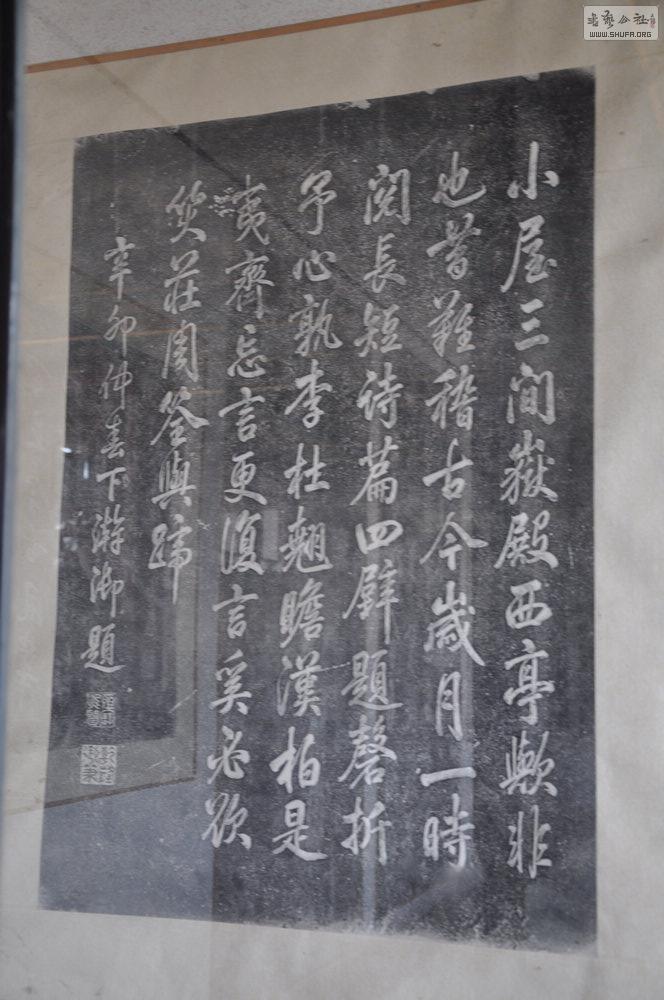 小屋三間嶽殿西亭歟非
也昔難稽古今歲月一時
閱長短詩篇四壁題磬折
予心孰李杜翹瞻漢柏是
夷齊忘言更復言奚必欲
笑莊周筌與蹄
辛卯仲春下澣御題
书艺公社
WWW.SHUFA.ORG